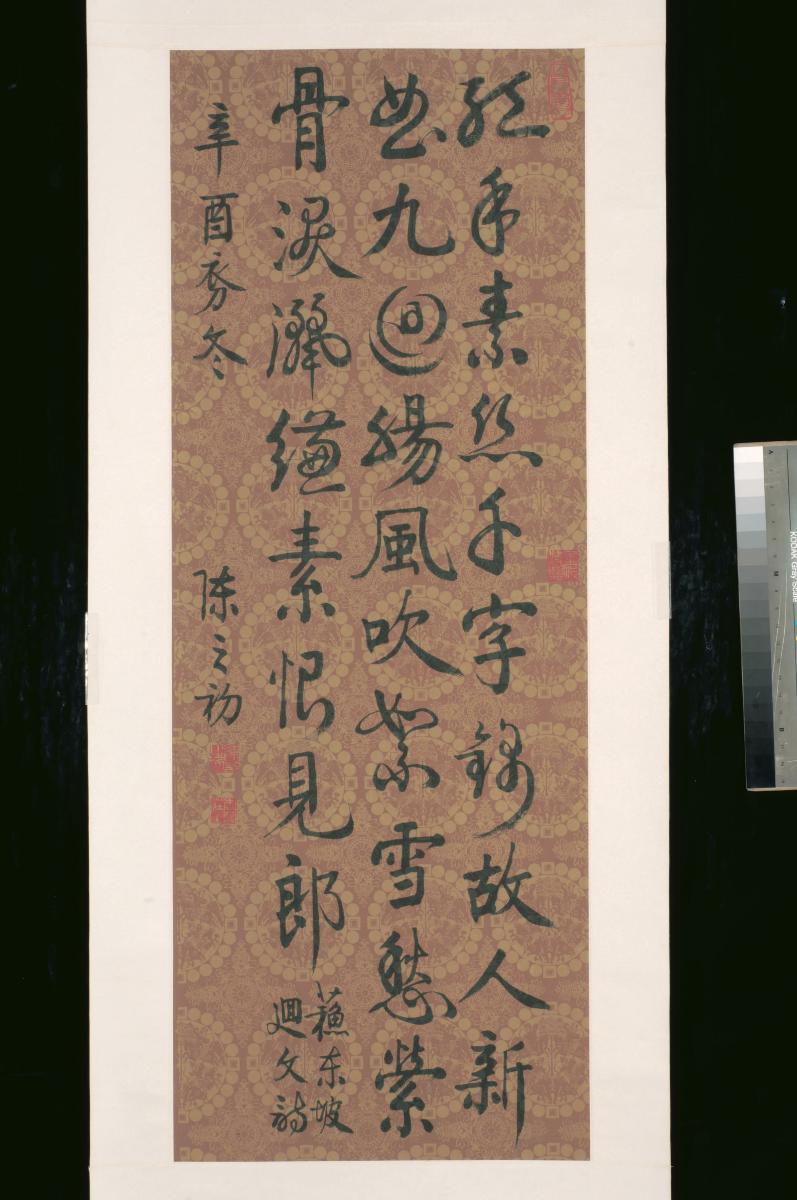 紅手素絲千字錦故人新
曲九迴腸風吹絮雪愁縈
骨淚灑縑素恨見郎
蘓東坡
迴文詩
辛酉冬
陳之初
KODAK Gray Scale